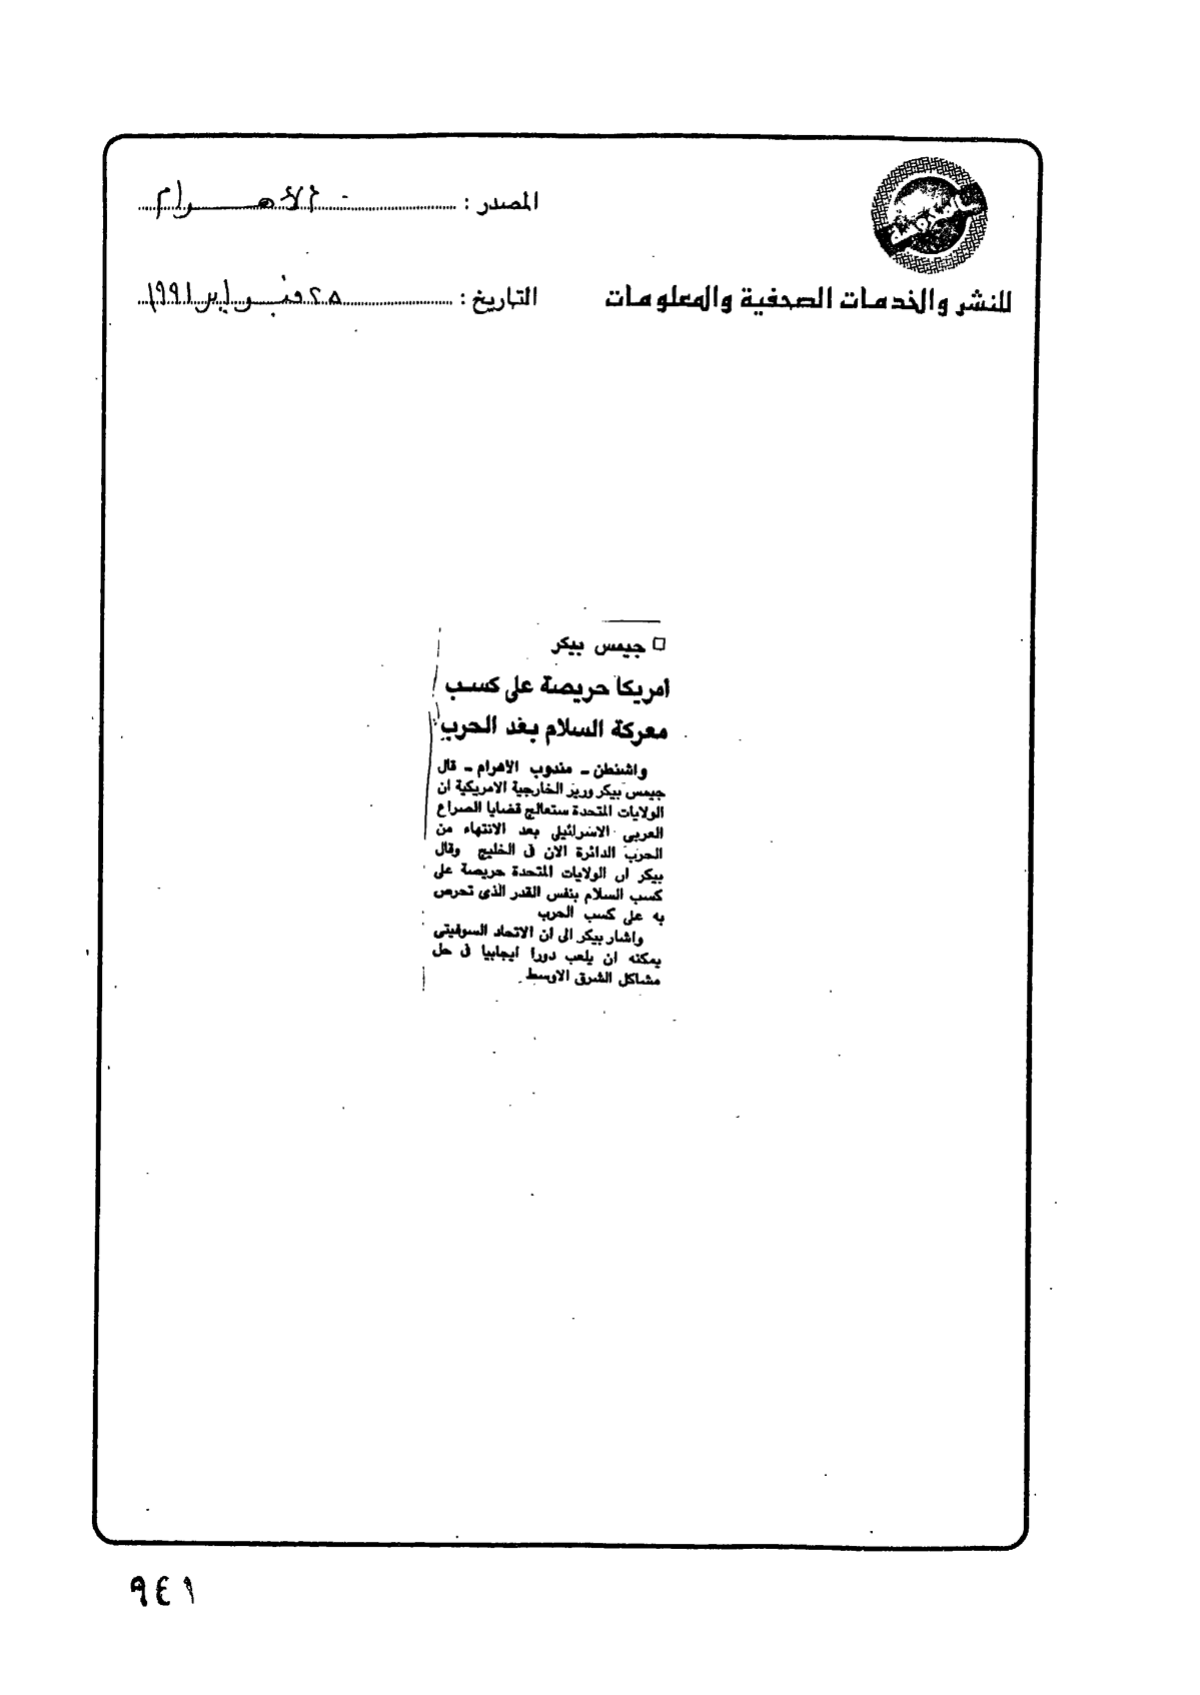 المصدر : الأهرام
للنشر والخدمات الصحفية والمعلومات
التاريخ : ٢٨ فبراير ١٩٩١
□ جيمس بيكر
أمريكا حريصة على كسب
معركة السلام بعد الحرب
واشنطن - مندوب الأهرام - قال
جيمس بيكر وزير الخارجية الامريكية ان
الولايات المتحدة ستعالج قضايا الصراع
العربى الاسرائيلى بعد الانتهاء من
الحرب الدائرة الان فى الخليج وقال
بيكر ان الولايات المتحدة حريصة على
كسب السلام بنفس القدر الذى تحرص
به على كسب الحرب
واشار بيكر الى ان الاتحاد السوفيتى
يمكنه ان يلعب دورا ايجابيا فى حل
مشاكل الشرق الاوسط
٩٤١